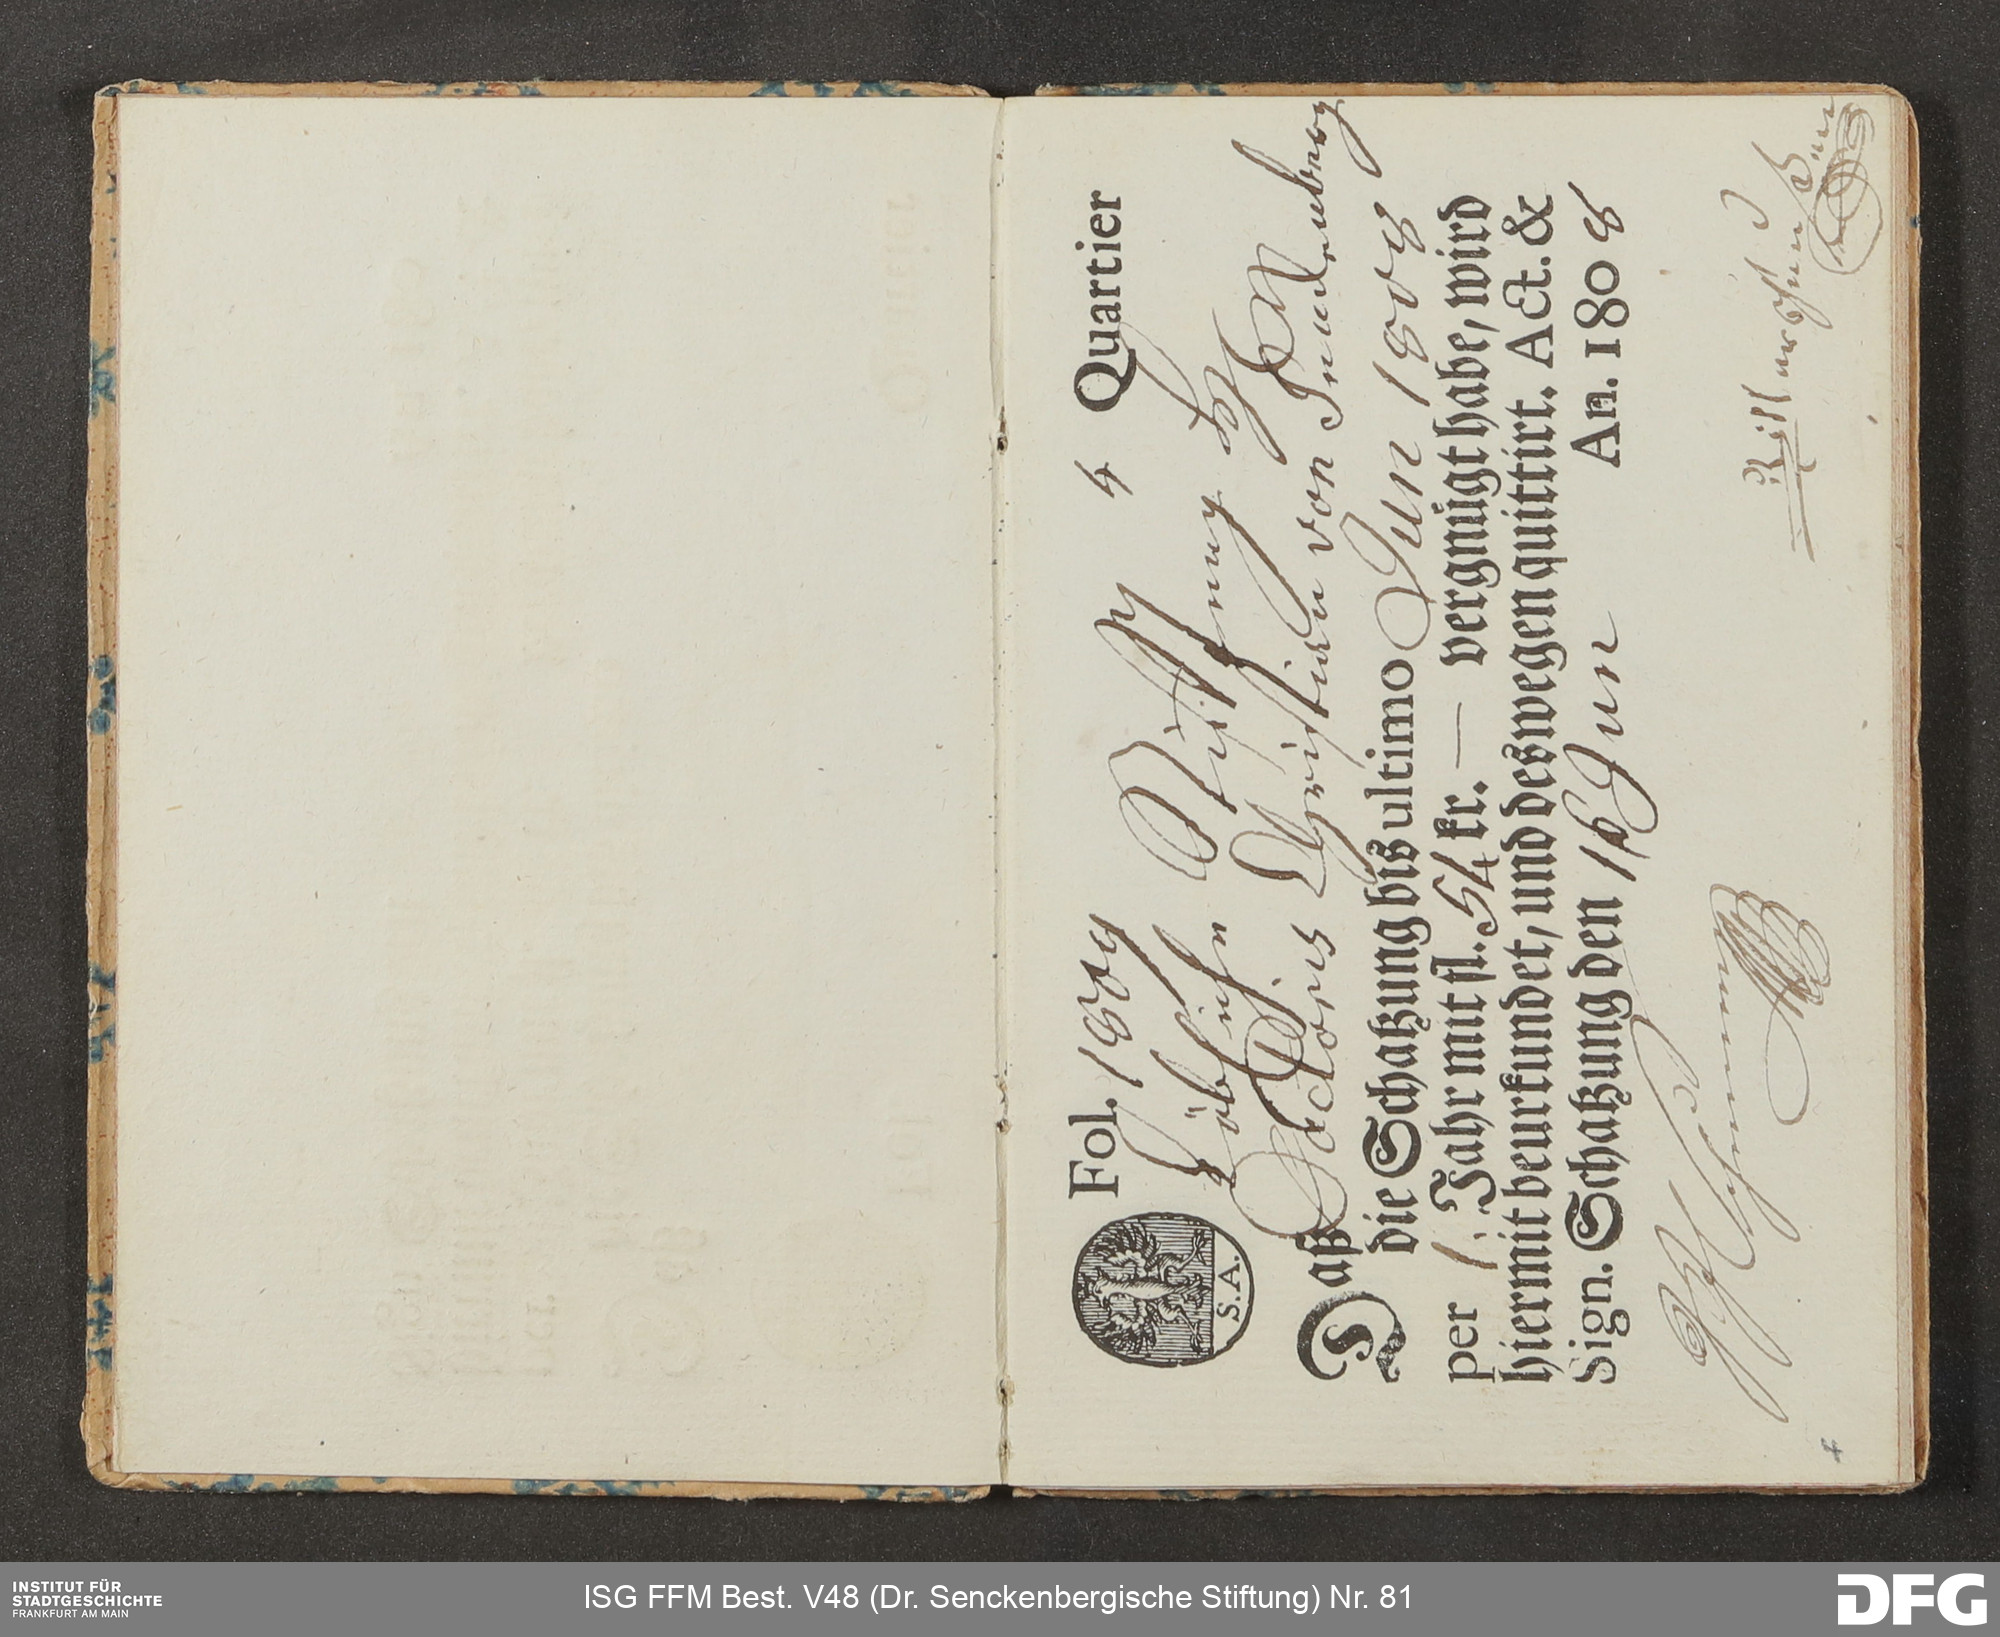 Fol. 1809 4 Quartier
Löbliche Stiftung des H.
S.A.
Daß Doctoris Christian von Senckenberg
die Schatzung biß ultimo Jun 1808
per 1. Jahr mit fl. 54 kr. — vergnügt habe, wird
hiermit beurkundet, und deßwegen quittirt. Act. &
Sign. Schatzung den 16 Jun An. 1808
INSTITUT FÜR
STADTGESCHICHTE
FRANKFURT AM MAIN
ISG FFM Best. V48 (Dr. Senckenbergische Stiftung) Nr. 81
DFG